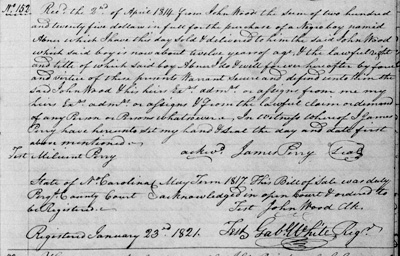 No. 152. Recd. the 2nd of April 1814 from John Wood the sum of two hundred
and twenty five dollars in part for the purchase of a Negro boy named
Abner which I have this day Sold & delivered to him the said John Wood
which said boy is now about twelve years of age & the lawful right
and title of which said boy Abner I do & will forever hereafter by force
and virtue of these presents Warrant Secure and defend unto him the
said John Wood & his heirs Exrs. admrs. or assigns from me my
heirs Exrs. admrs. or assigns & from the lawful claim or demand
of any Person or Persons whatsoever. In witness whereof I James
Perry have hereunto set my hand & Seal the day and date first
above mentioned.
Test Milicent Perry ackd. James Perry (Seal)
State of No. Carolina May Term 1817 This Bill of Sale was duly
County Court acknowledged in open Court & ordered to
be Registered. Test John Wood Clk.
Registered January 23rd 1821. Test Gabl. White Regr.